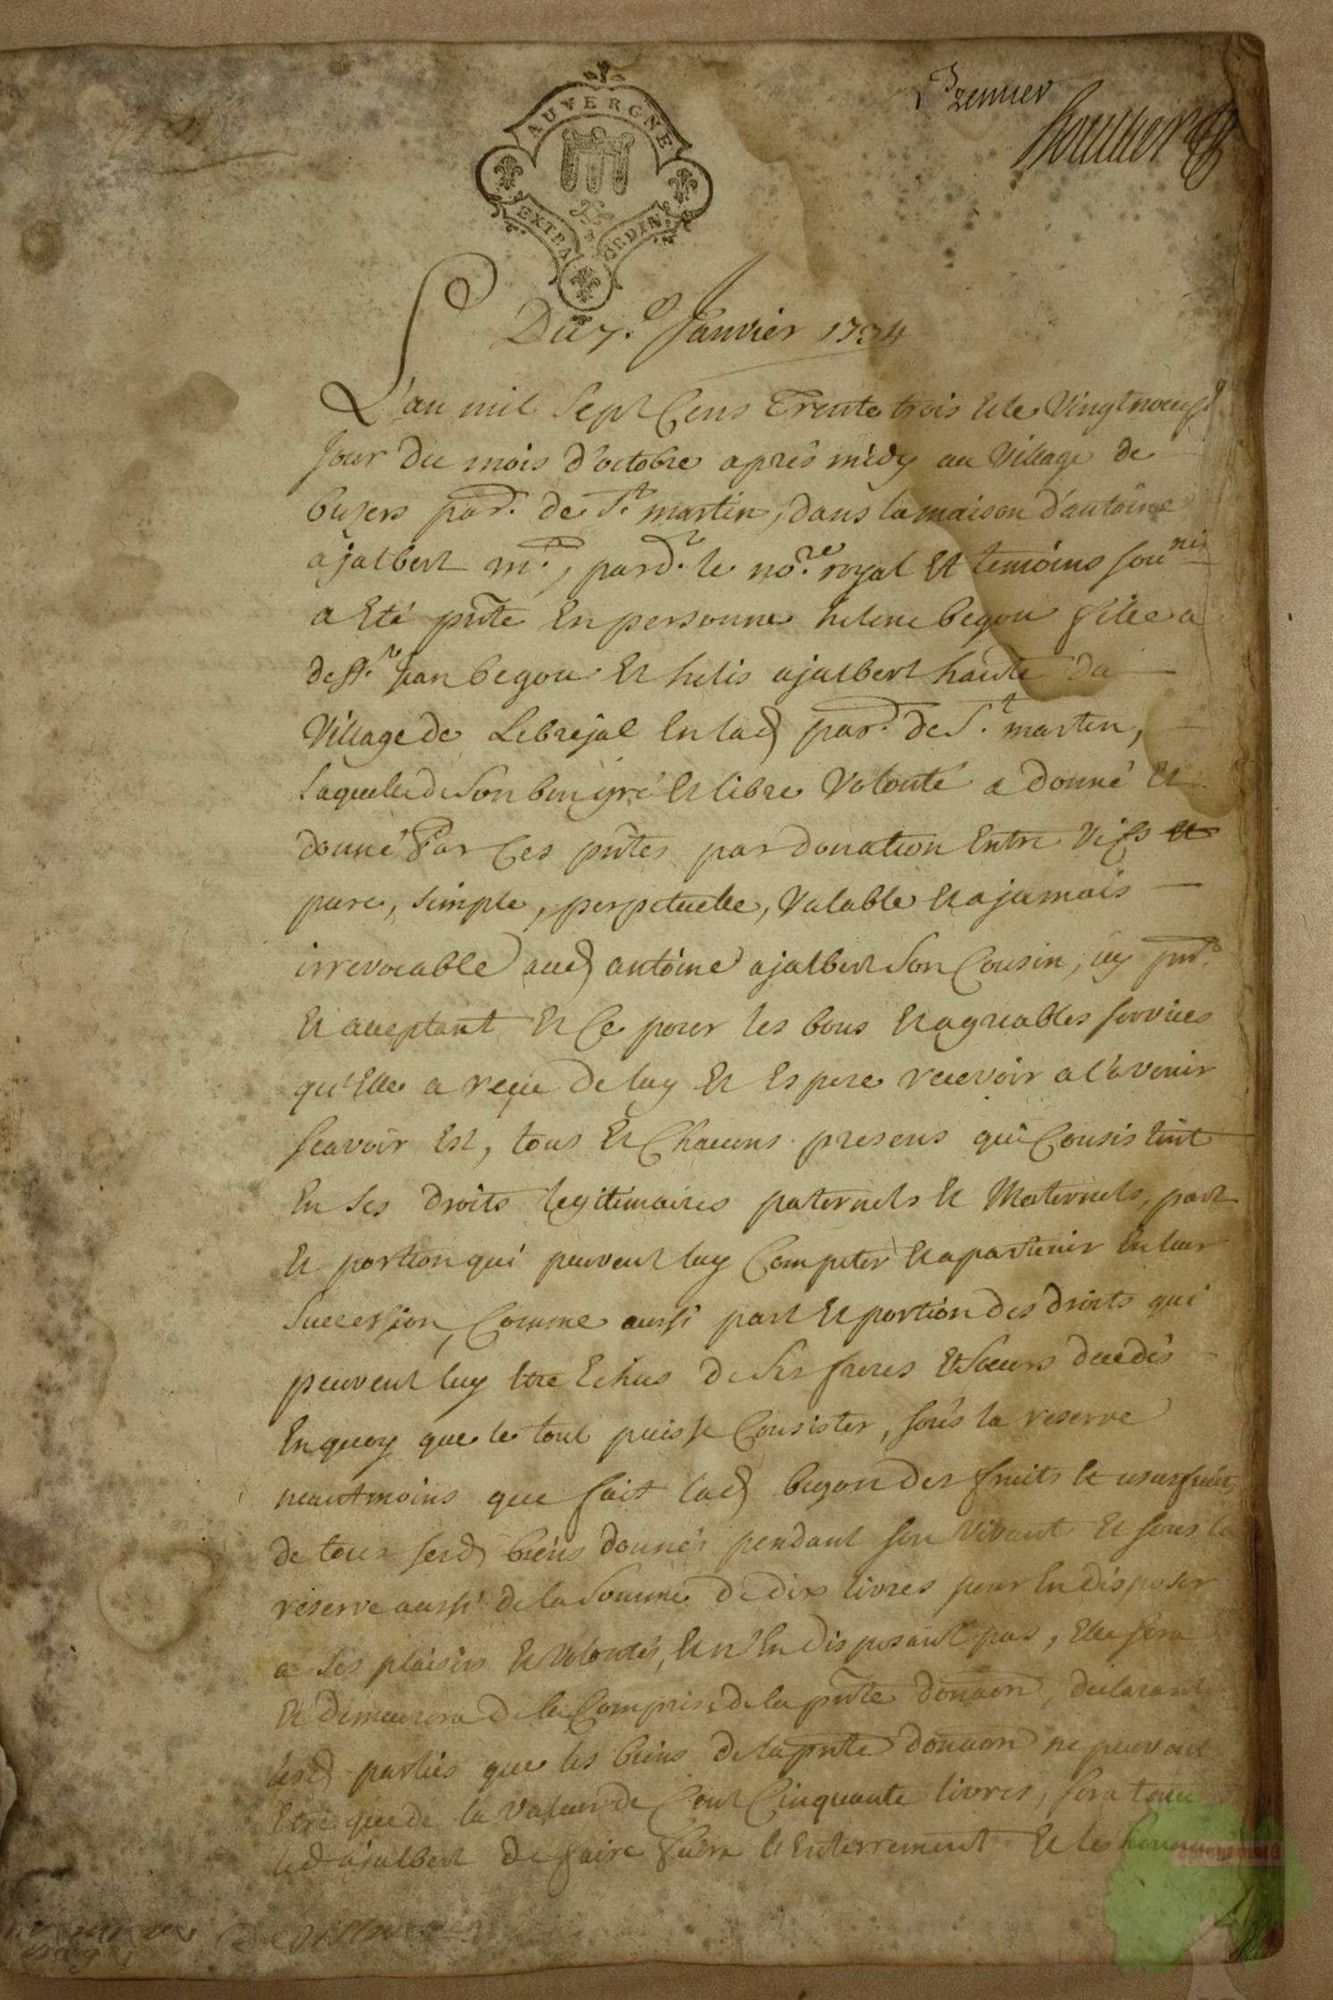 Premier
AUVERGNE
EXTRA ORDIN
Du 7.e Janvier 1734
L'an mil Sept Cens Trente trois et le Vingt noeuf
Jour Du mois d'octobre après midy au Village de
buzers par. de St martin, dans la maison d'antoine
ajalbert m.e, pard.t le no.re royal Et temoins sou.nés
a Eté pnte En personne helene begon fille a
deff.t Jean begon Et helis ajalbert hante du
Village de Lebrejal En lad par. de St martin,
Laquelle de Son bon gré Et libre Volonté a donné Et
donne Par Ces pntes par donation Entre Vifs et
pure, simple, perpetuelle, Valable Et a jamais
irrevocable aud antoine ajalbert Son Cousin, icy pnt
Et aceptant Et Ce pour les bons Et agreables services
qu'Elle a reçeu De luy Et Espere recevoir a l'avenir
scavoir Est, tous Et Chacuns presens qui Consistent
En ses droits legitimaires paternels Et Maternels, part
Et portion qui peuvent luy Competer Et apartenir En leur
Succession, Comme aussi part Et portion des droits qui
peuvent luy Etre Echus de Ses freres Et Soeurs decedés
En quoy que le tout puisse Consister, sous la reserve
neantmoins que fait lad begon des fruits Et usufruit
de tous sesd biens donnés pendant son Vivant Et sous la
reserve aussi de la Somme De dix livres pour En disposer
a Ses plaisirs Et Volontés, Et n'En disposant pas, Elle sera
Et demeurera de le Comprise de la pnte donaon, declarant
lesd parties que les biens de la pnte donaon ne peuvent
Etre que de la Valeur de Cent Cinquante livres, sera tenu
led ajalbert de faire faire l'Enterrement Et les